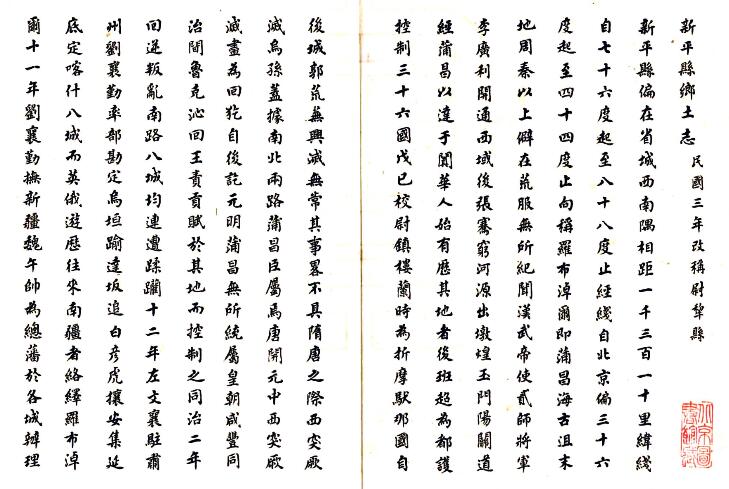 新平縣鄉土志 民國三年改稱尉犁縣
新平縣偏在省城西南隅相距一千三百一十里緯綫
自七十六度起至八十八度止經綫自北京偏三十六
度起至四十四度止向稱羅布淖爾即蒲昌海古沮末
地周秦以上僻在荒服無所紀聞漢武帝使貳師將軍
李廣利開通西域後張騫窮河源出墩煌玉門陽關道
經蒲昌以達于闐華人始有歷其地者後班超為都護
控制三十六國戊巳校尉鎮樓蘭時為折摩馱那國自
後城郭荒蕪興滅無常其事畧不具隋唐之際西突厥
滅烏孫蓋據南北兩路蒲昌臣屬焉唐開元中西突厥
滅盡為回犵自後訖元明蒲昌無所統屬皇朝咸豐同
治間魯克沁回王責貢賦於其地而控制之同治二年
回逆叛亂南路八城均連遭蹂躪十二年左文襄駐肅
州劉襄勤率部勘定烏垣踰達坂追白彥虎攘安集延
底定喀什八城而英俄遊歷往來南疆者絡繹羅布淖
爾十一年劉襄勤撫新疆魏午帥為總藩於各城辦理
北京圖書館藏